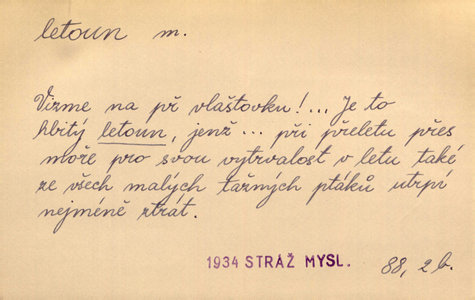 letoun m.
Vizme na př vlaštovku!... Je to
hbitý letoun, jenž... při přeletu přes
moře pro svou vytrvalost v letu také
ze všech malých tažných ptáků utrpí
nejméně ztrát.
1934 STRÁŽ MYSL. 88, 2 b.